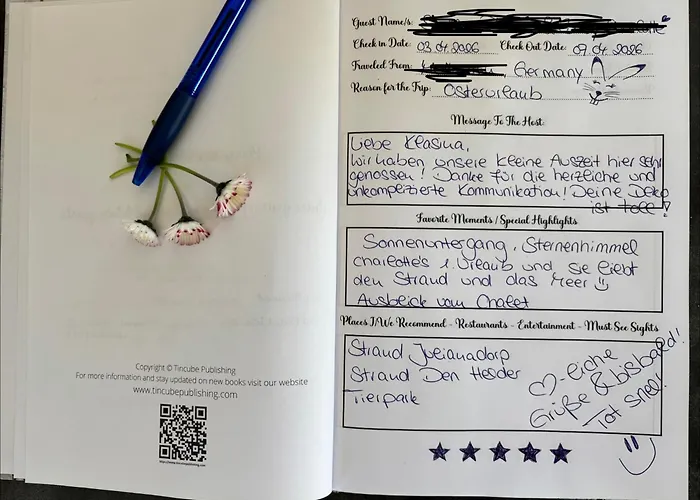 Copyright © Tincube Publishing
For more information and stay updated on new books visit our website
www.tincubepublishing.com
http://www.tincubepublishing.com
Guest Name/s:
Check in Date: 03.04.2026 Check Out Date: 07.04.2026
Traveled From: Germany
Reason for the Trip: Osterurlaub
Message To The Host:
Liebe Klasina,
wir haben unsere kleine Auszeit hier sehr
genossen! Danke für die herzliche und
unkomplizierte Kommunikation! Deine Deko
ist toll!
Favorite Moments / Special Highlights
Sonnenuntergang, Sternenhimmel
Charlotte's 1. Urlaub und sie liebt
den Strand und das Meer
Ausblick vom Chalet
Places I/We Recommend - Restaurants - Entertainment - Must See Sights
Strand Julianadorp
Strand Den Helder
Tierpark
♡-liche
Grüße & bis bald!
Tot snel!